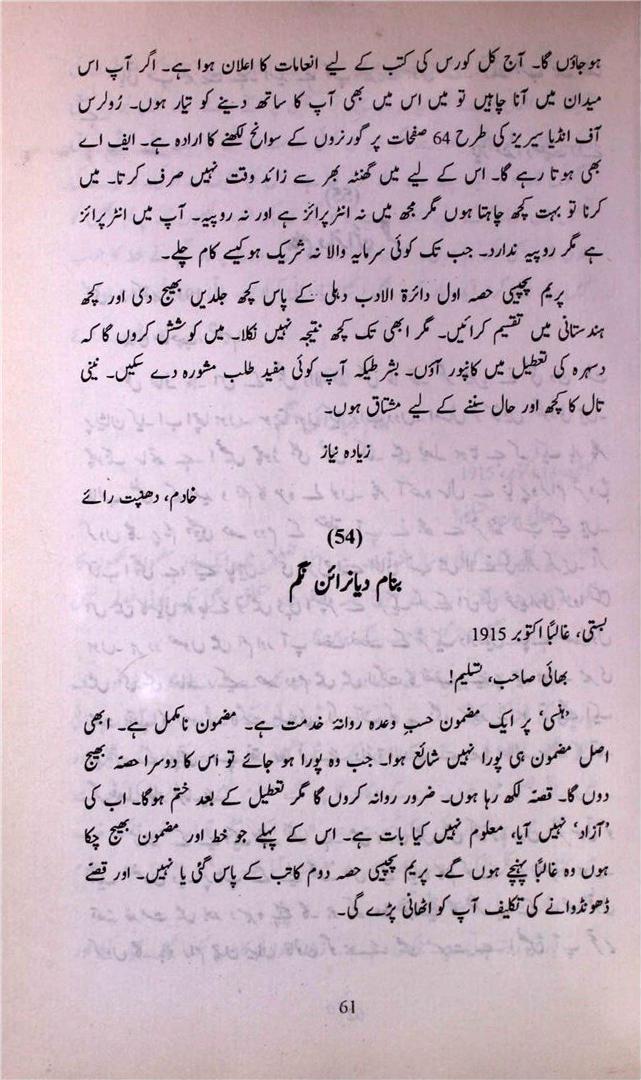 ہوجاؤں گا۔ آج کل کورس کی کتب کے لیے انعامات کا اعلان ہوا ہے۔ اگر آپ اس
میدان میں آنا چاہیں تو میں اس میں بھی آپ کا ساتھ دینے کو تیار ہوں۔ رُولرس
آف انڈیا سیریز کی طرح 64 صفحات پر گورنروں کے سوانح لکھنے کا ارادہ ہے۔ ایف اے
بھی ہوتا رہے گا۔ اس کے لیے میں گھنٹہ بھر سے زائد وقت نہیں صرف کرتا۔ میں
کرنا تو بہت کچھ چاہتا ہوں مگر مجھ میں نہ انٹرپرائز ہے اور نہ روپیہ۔ آپ میں انٹرپرائز
ہے مگر روپیہ ندارد۔ جب تک کوئی سرمایہ والا نہ شریک ہو کیسے کام چلے۔
پریم پچیسی حصہ اول دائرۃ الادب دہلی کے پاس کچھ جلدیں بھیج دی اور کچھ
ہندستانی میں تقسیم کرائیں۔ مگر ابھی تک کچھ نتیجہ نہیں نکلا۔ میں کوشش کروں گا کہ
دسہرہ کی تعطیل میں کانپور آؤں۔ بشرطیکہ آپ کوئی مفید طلب مشورہ دے سکیں۔ نینی
تال کا کچھ اور حال سننے کے لیے مشتاق ہوں۔
زیادہ نیاز
خادم، دھنپت رائے
(54)
بنام دیانرائن نگم
بستی، غالبًا اکتوبر 1915
بھائی صاحب، تسلیم!
’ہنسی‘ پر ایک مضمون حسبِ وعدہ روانۂ خدمت ہے۔ مضمون نامکمل ہے۔ ابھی
اصل مضمون ہی پورا نہیں شائع ہوا۔ جب وہ پورا ہو جائے تو اس کا دوسرا حصّہ بھیج
دوں گا۔ قصّہ لکھ رہا ہوں۔ ضرور روانہ کروں گا مگر تعطیل کے بعد ختم ہوگا۔ اب کی
’آزاد‘ نہیں آیا، معلوم نہیں کیا بات ہے۔ اس کے پہلے جو خط اور مضمون بھیج چکا
ہوں وہ غالبًا پہنچے ہوں گے۔ پریم پچیسی حصہ دوم کاتب کے پاس گئی یا نہیں۔ اور قصّے
ڈھونڈوانے کی تکلیف آپ کو اٹھانی پڑے گی۔
61